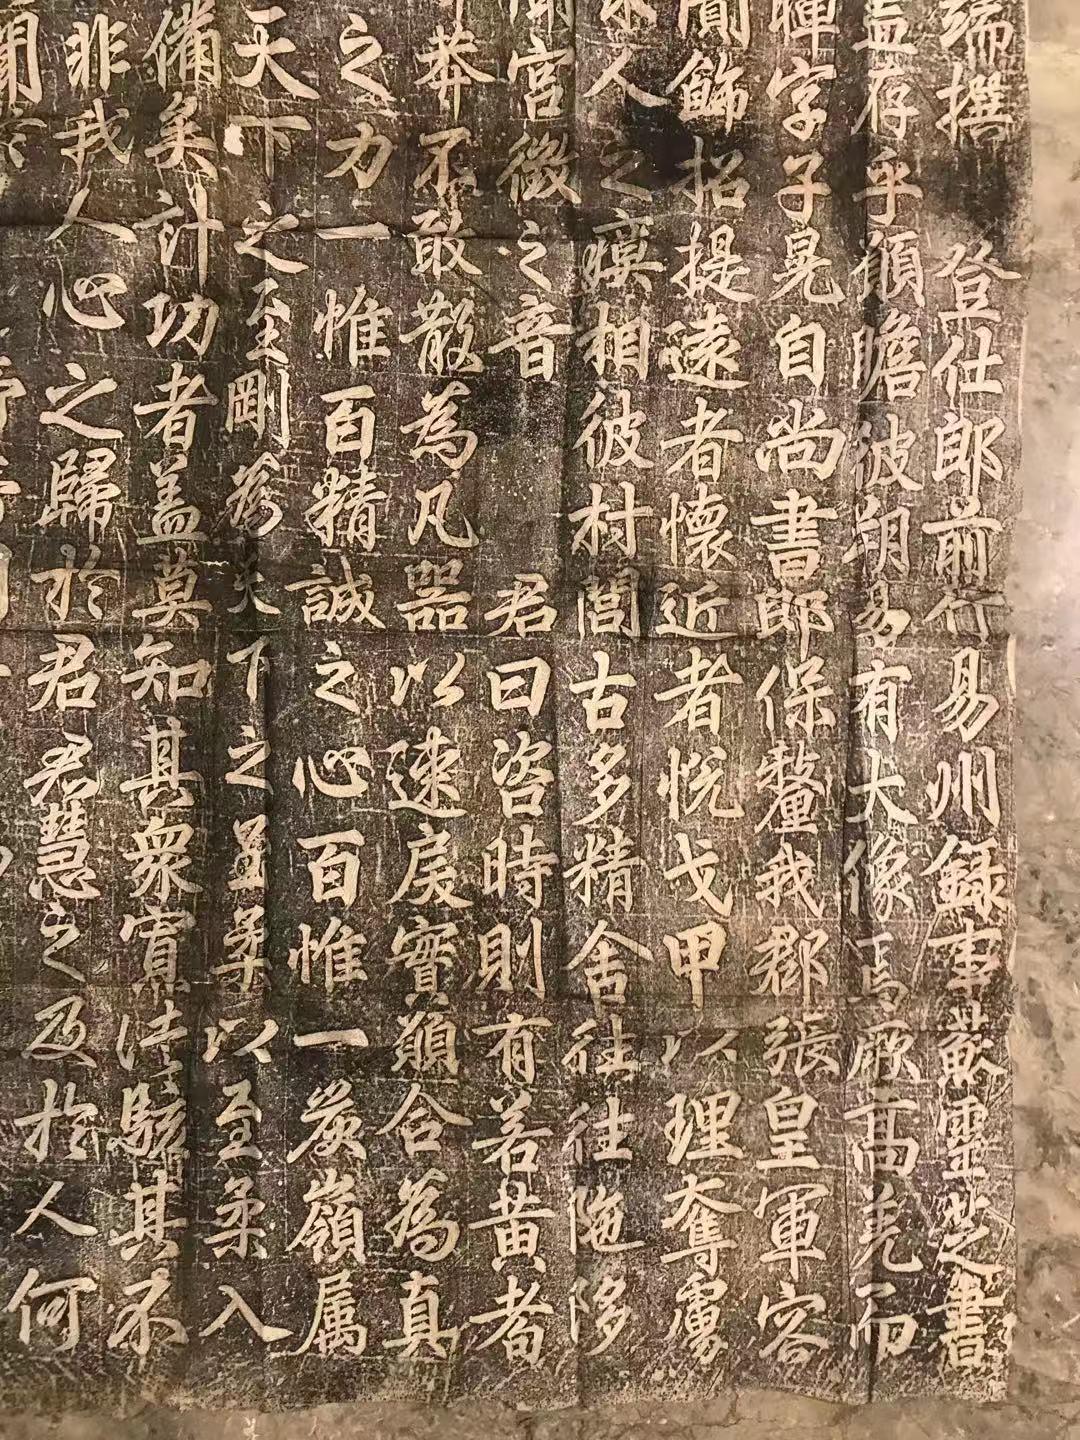 端撰　登仕郎前行易州録事蘇靈芝書
盖存乎願瞻彼朔易有大像焉厥高羌而
暉字子晃自尚書郎保釐我郡張皇軍容
飾招提遠者懷近者悦戈甲以理奪虜
人之瘼相彼村閭古多精舍往往陁陊
宮徵之音　君曰咨時則有若黄者耇
莽不敢散為凡器以速戾實願合為真
之力一惟百精誠之心百惟一炭嶺属
天下之至剛為天下之至柔以至柔入
備矣計功者盖莫知其衆實法駭其不
非我人心之歸於君君慧之及於人何